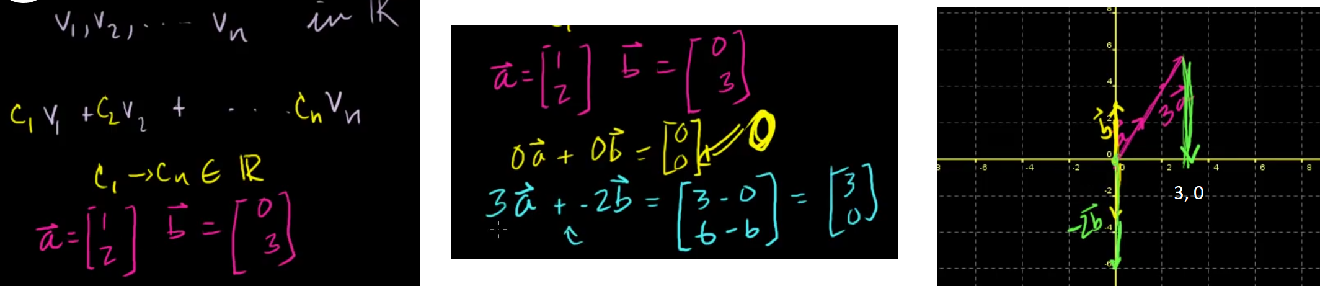 v₁, v₂, ... vₙ in ℝ
c₁v₁ + c₂v₂ + ... cₙvₙ
c₁ → cₙ ∈ ℝ
a⃗ = [1 2] b⃗ = [0 3]
a⃗ = [1 2] b⃗ = [0 3]
0a⃗ + 0b⃗ = [0 0] 0
3a⃗ + -2b⃗ = [3-0 6-6] = [3 0]
8
6
4
2
0
-2
-4
-6
-8 -6 -4 -2 0 2 4 6 8
b⃗
a⃗
3a⃗
-2b⃗
3, 0